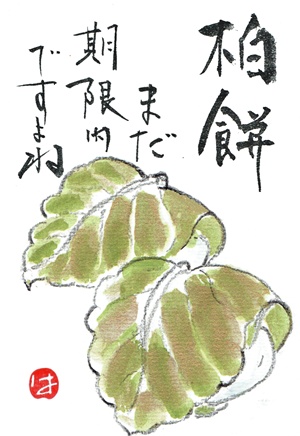 柏餅
まだ
期限内
ですよね
は